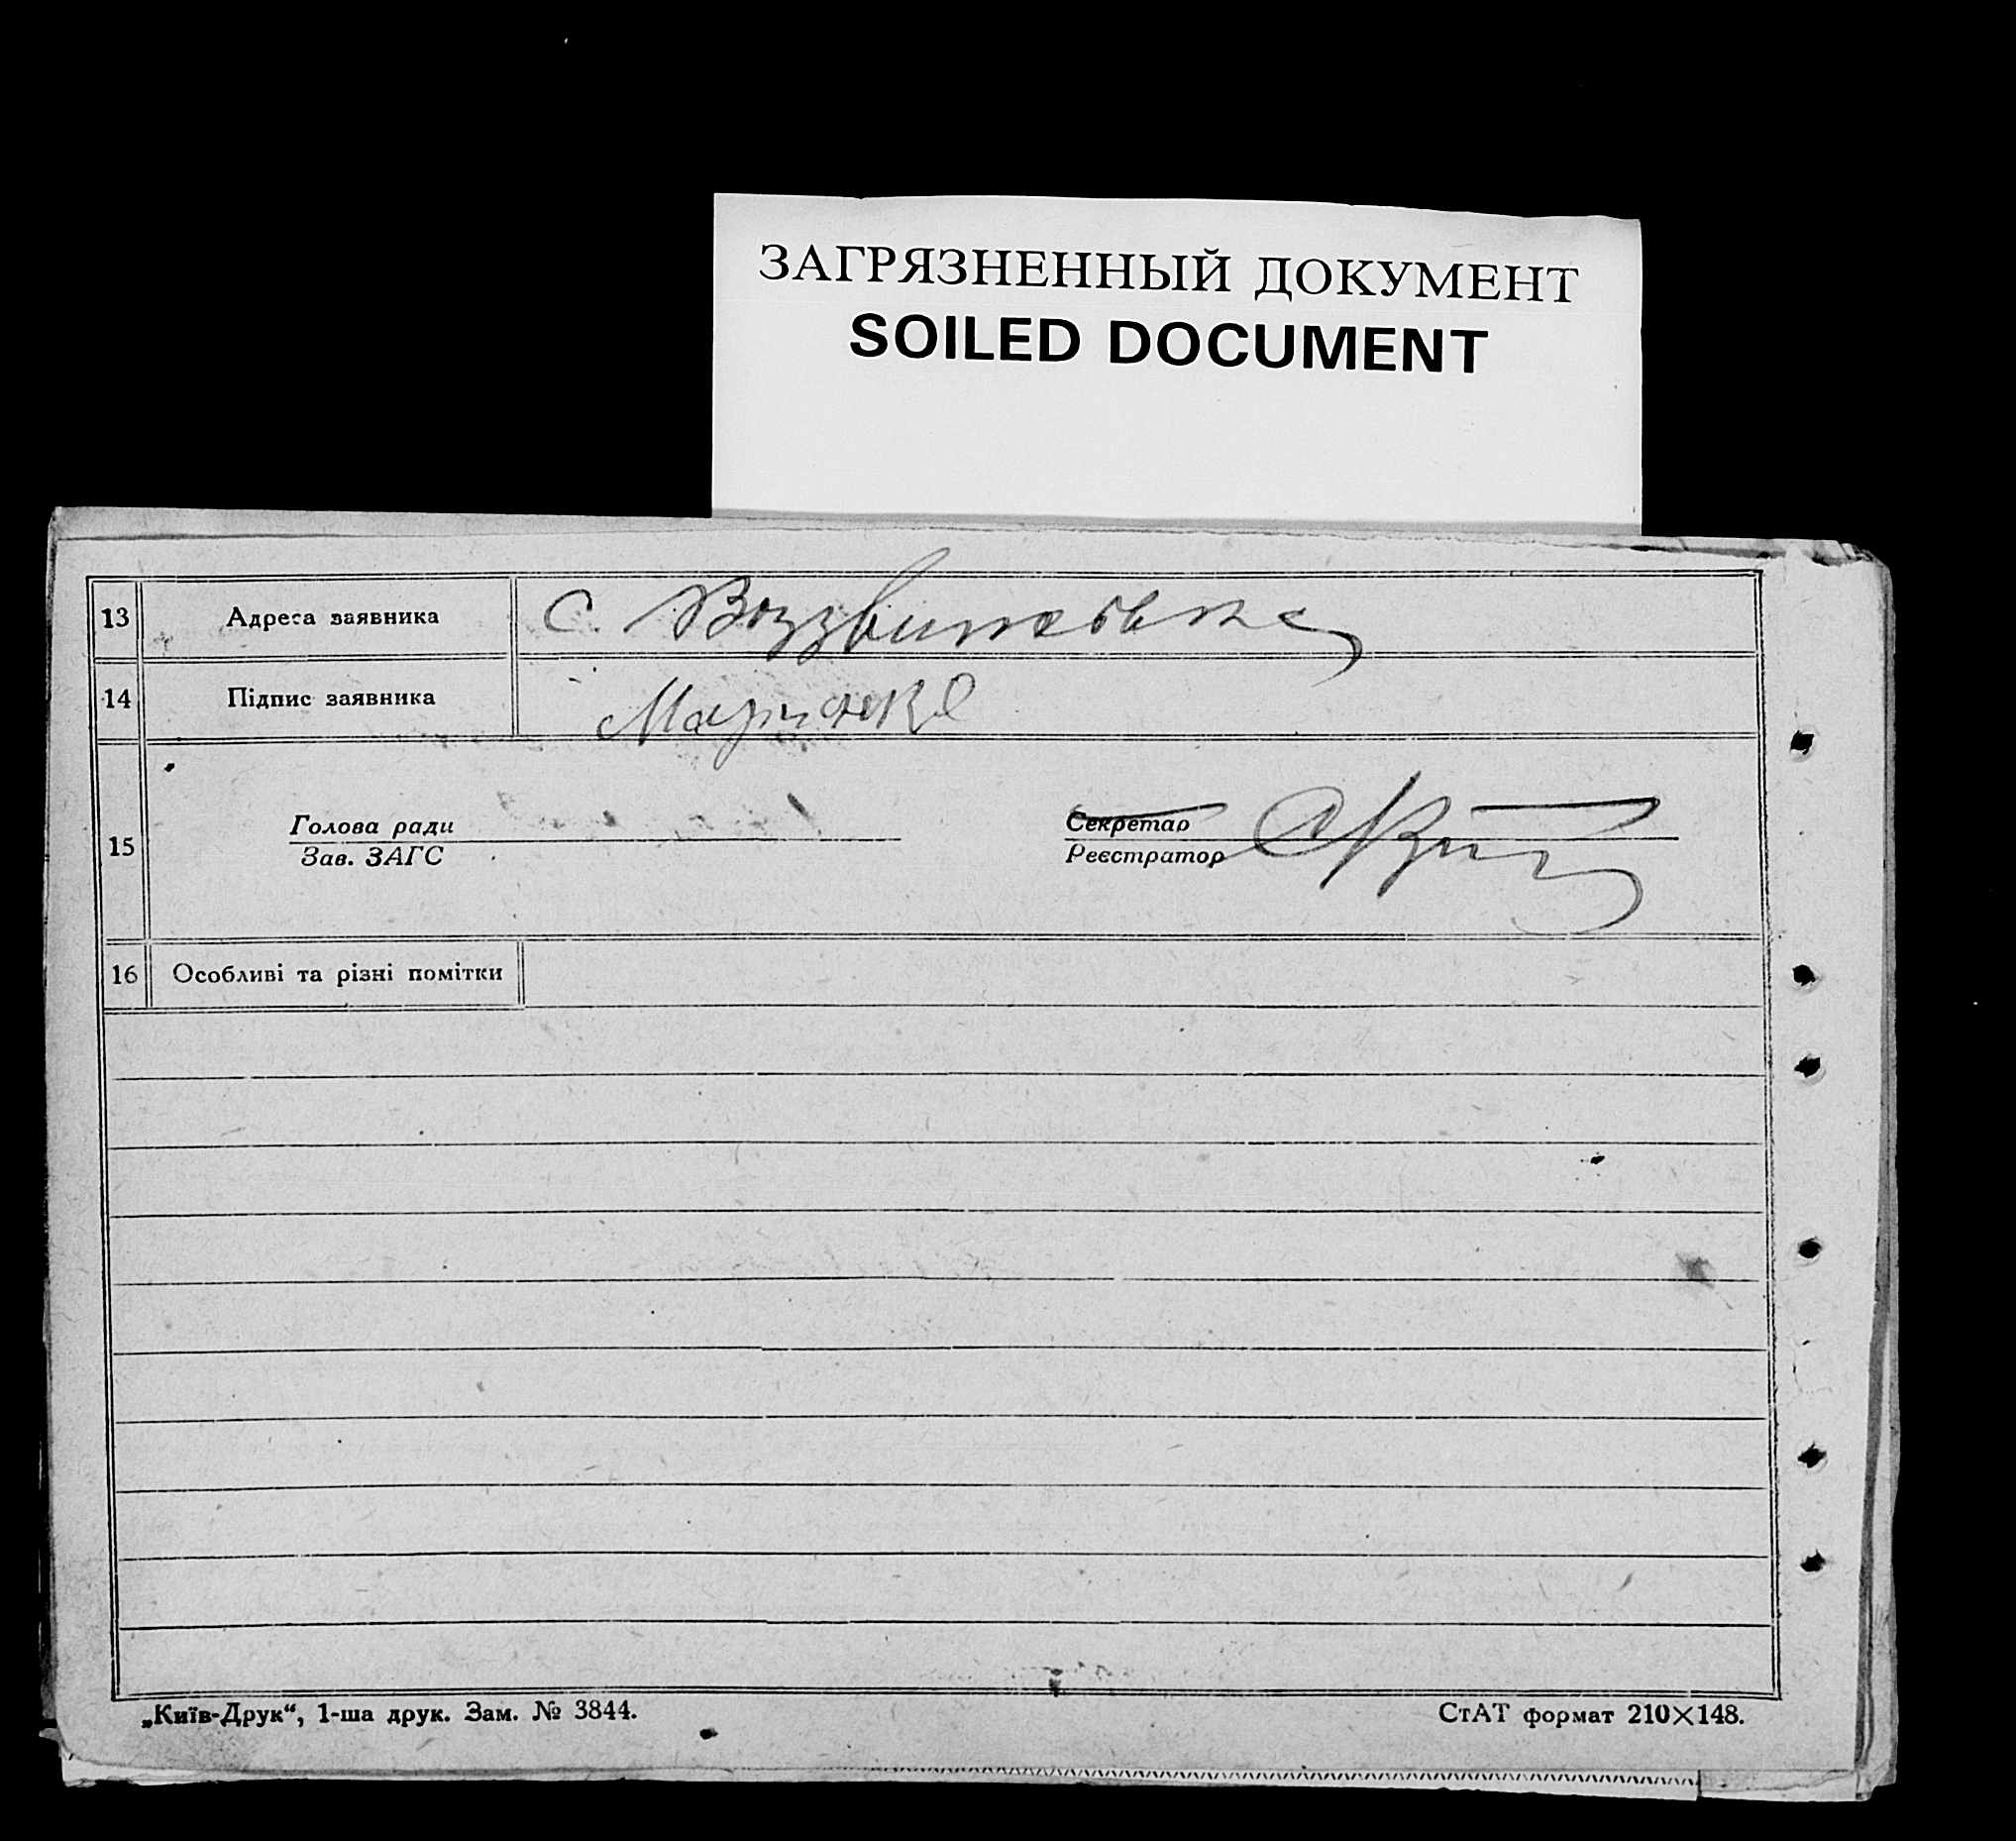 ЗАГРЯЗНЕННЫЙ ДОКУМЕНТ
SOILED DOCUMENT
13 Адреса заявника с. Воздвижовка
14 Підпис заявника
15 Голова ради Секретар
Зав. ЗАГС Реєстратор
16 Особливі та різні помітки
„Київ-Друк“, 1-ша друк. Зам. № 3844. СтАТ формат 210×148.